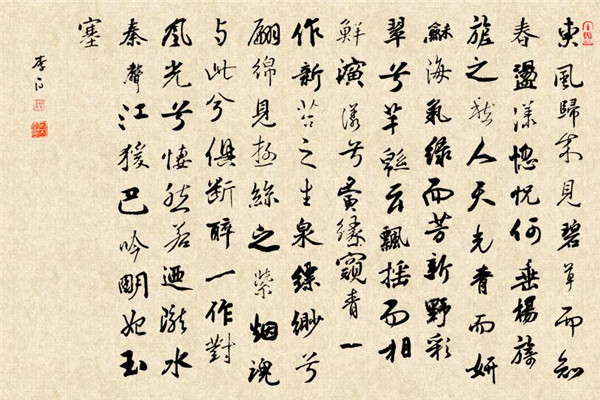 東風歸來見碧草而知
春盪漾惚怳何垂楊旖
旎之愁人天光青而妍
龢海氣綠而芳新野彩
翠兮芊緜云飄搖而相
鮮演漾兮夤緣窺青一
作新苔之生泉縹緲兮
翩綿見遊絲之縈烟魂
與此兮俱斷醉一作對
風光兮悽然若迺隴水
秦聲江猨巴吟明妃玉
塞
李白